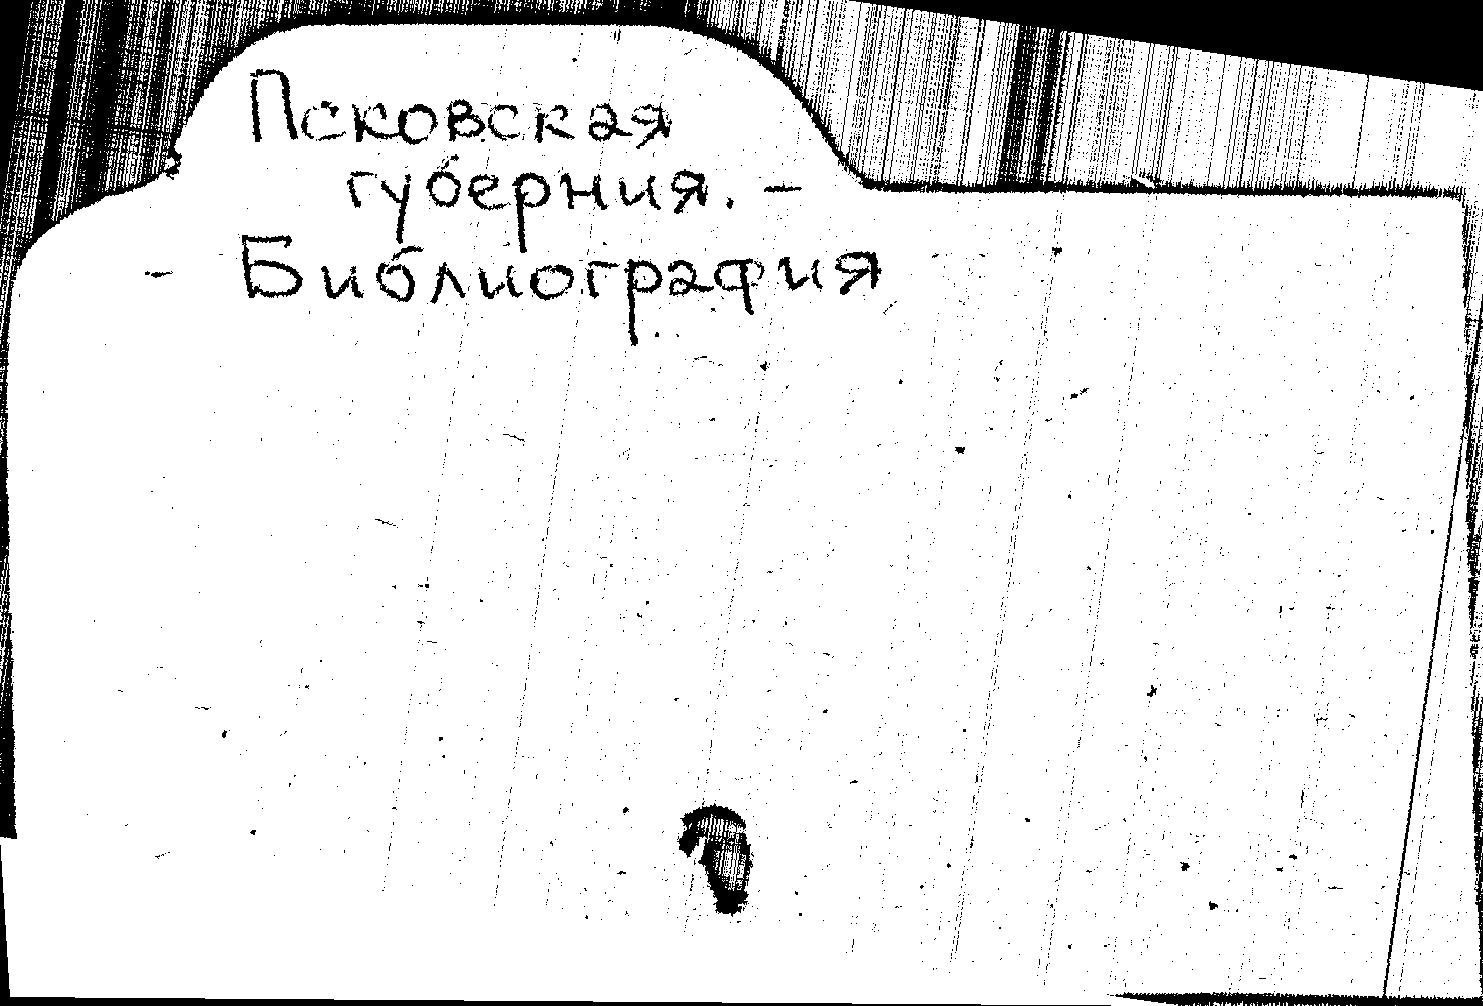 Псковская
губерния. –
- Библиография